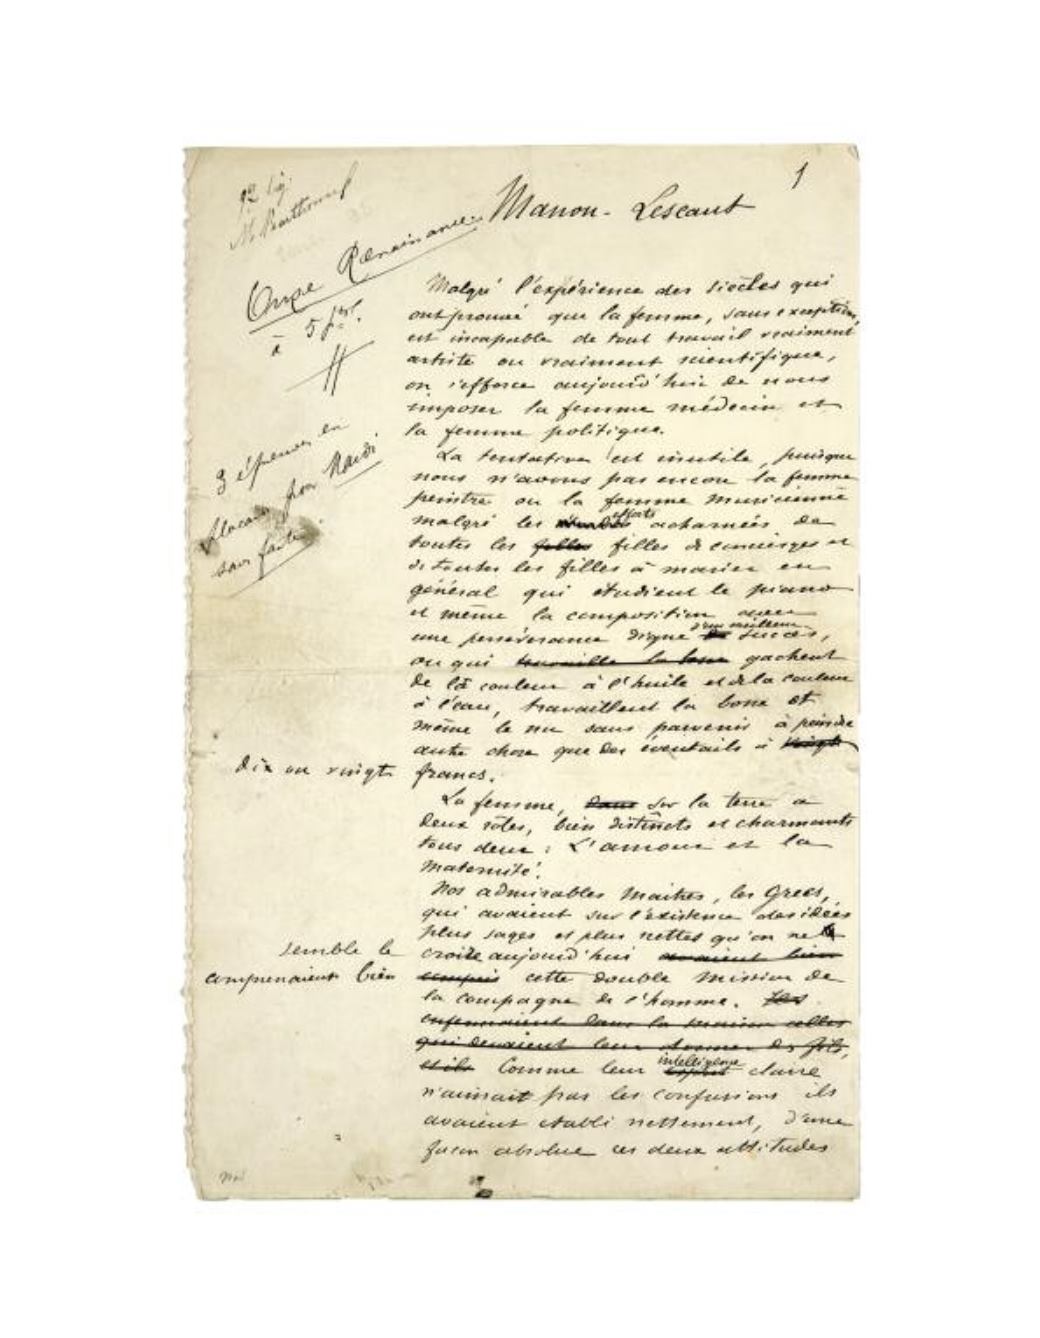 1
Manon Lescaut
Onze Renaissance
à 5 f
3 épreuves en
placards pour Mardi
sans faute
Malgré l'expérience des siècles qui
ont prouvé que la femme, sans exception,
est incapable de tout travail vraiment
artiste ou vraiment scientifique,
on s'efforce aujourd'hui de nous
imposer la femme médecin et
la femme politique.
La tentative est inutile, puisque
nous n'avons pas encore la femme
peintre ou la femme musicienne
malgré les efforts acharnés de
toutes les filles filles de concierges et
de toutes les filles à marier en
général qui étudient le piano
et même la composition avec
une persévérance digne d'un meilleur succès,
ou qui travaille la bosse gachent
de la couleur à l'huile et de la couleur
à l'eau, travaillent la bosse et
même le nu sans parvenir à peindre
autre chose que des éventails à vingt
dix ou vingt francs.
La femme, dans sur la terre a
deux rôles, bien distincts et charmants
tous deux : L'amour et la
maternité.
Nos admirables Maitres, les Grecs,
qui avaient sur l'existence des idées
plus sages et plus nettes qu'on ne
croit aujourd'hui avaient bien
semble le
comprenaient bien
compris cette double mission de
la compagne de l'homme. Ils
enfermaient dans la maison celles
qui devaient leur donner des fils,
et ils Comme leur intelligence esprit claire
n'aimait pas les confusions ils
avaient etabli nettement, d'une
façon absolue ces deux attitudes